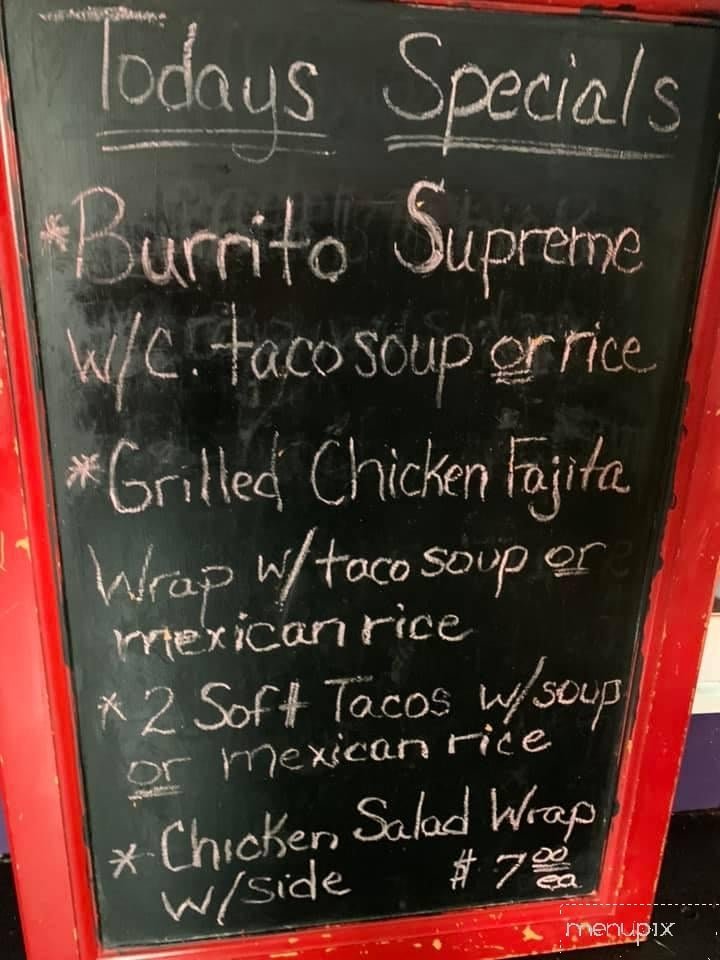 Todays Specials
*Burrito Supreme
W/C. taco soup or rice
*Grilled Chicken Fajita
Wrap w/taco soup or
mexican rice
*2 Soft Tacos w/soup
or mexican rice
*Chicken Salad Wrap
w/side $7.00 ea
menupix